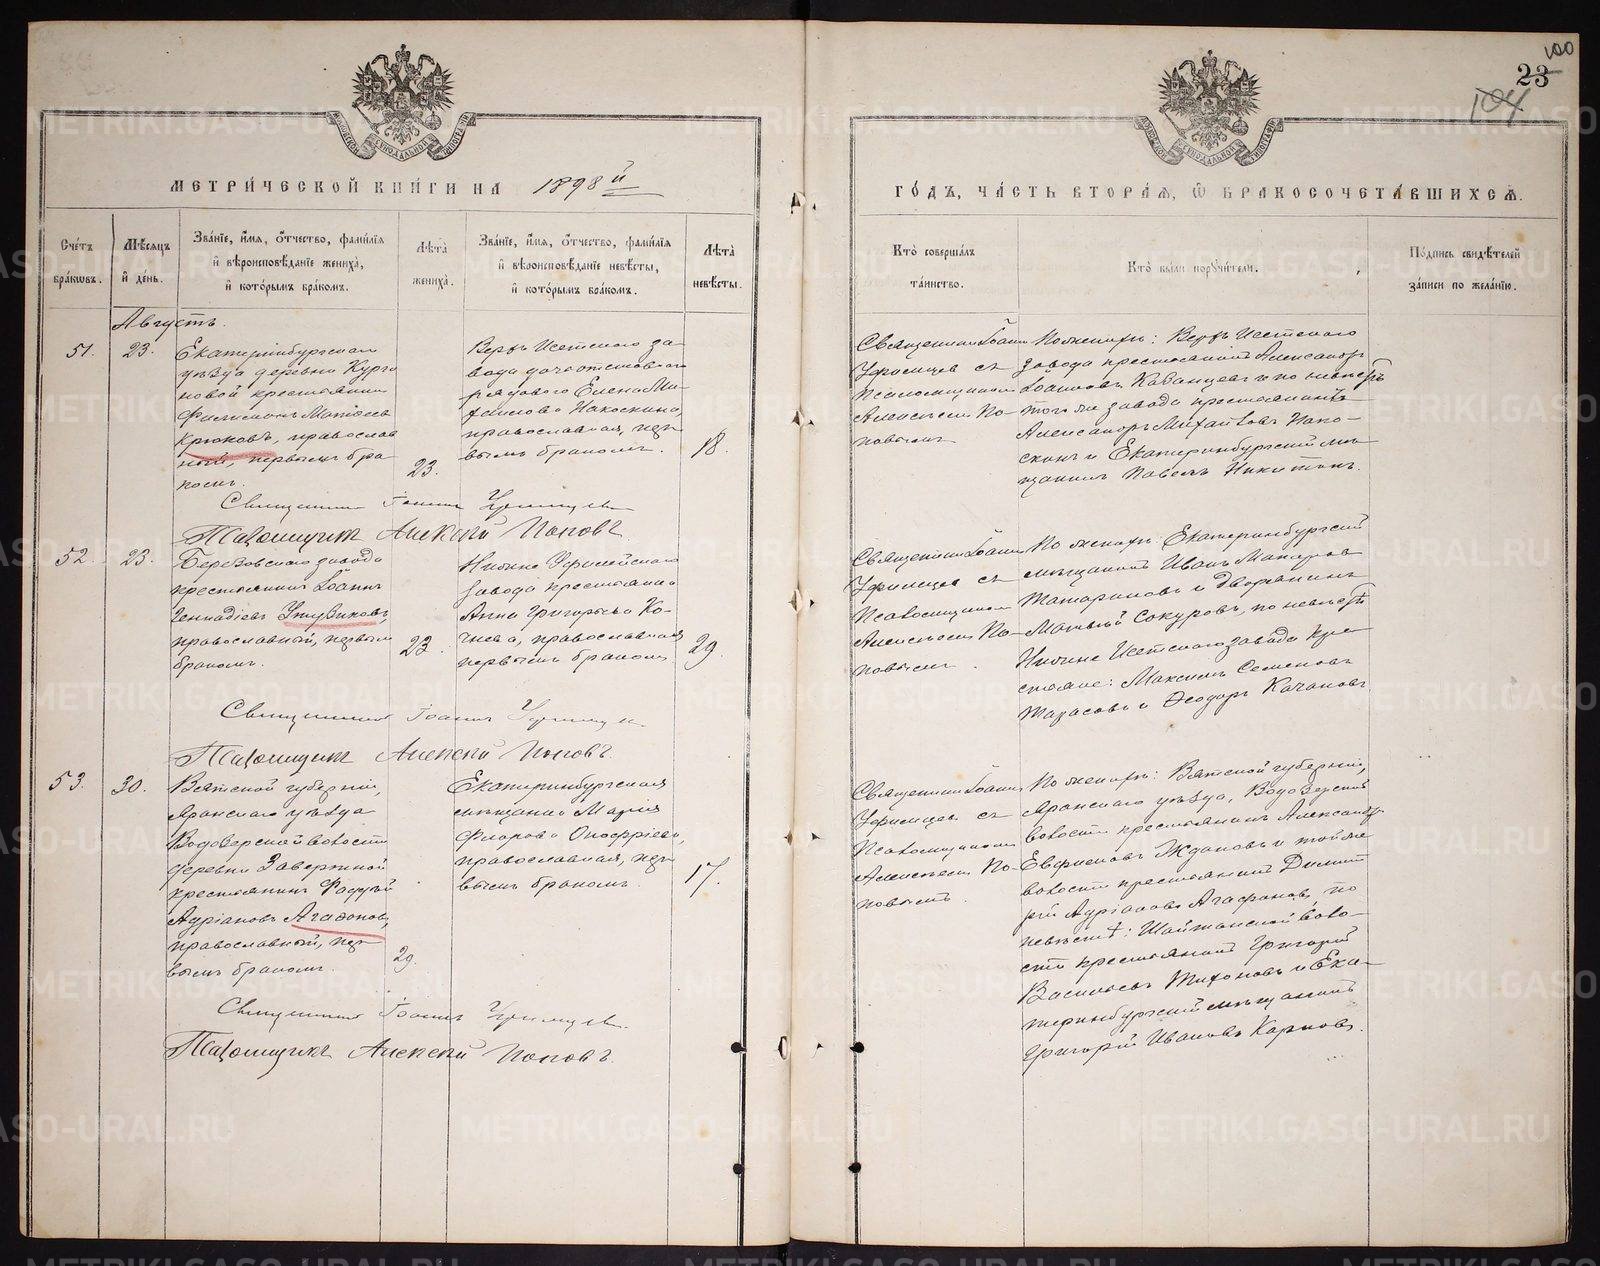 100
23
104
МЕТРИ́ЧЕСКОЙ КНИ́ГИ НА 1898й
ГО́ДЪ, ЧА́СТЬ ВТОРА́Ѧ, Ѡ҆ БРАКОСОЧЕТА́ВШИХСѦ.
Сче́тъ бра́кѡвъ.
Мѣ́сѧцъ и҆ де́нь.
Зва́нїе, и҆́мѧ, ѻ҆́тчество, фами́лїѧ и҆ вѣроисповѣ́данїе жениха̀, и҆ кото́рымъ бра́комъ.
Лѣ́та жениха̀.
Зва́нїе, и҆́мѧ, ѻ҆́тчество, фами́лїѧ и҆ вѣроисповѣ́данїе невѣ́сты, и҆ кото́рымъ бра́комъ.
Лѣ́та невѣ́сты.
Кто̀ соверша́лъ та́инство.
Кто̀ бы́ли порꙋчи́тели.
По́дпись свидѣ́телей за́писи по жела́нїю.
Августъ.
51.
23.
Екатеринбургскаго
уѣзда деревни Курга
новой крестьянинъ
Крюковъ, православ
ный, первымъ бра
комъ.
23.
Верхъ Исетскаго за-
вода дочь отставнаго
рядового Елена Ми-
хаилова Накоскина,
православная, пер-
вымъ бракомъ.
18.
Священникъ Іоаннъ
съ
Псаломщикомъ
Алексѣемъ По-
повымъ
По женихѣ: Верхъ Исетскаго
завода крестьянинъ Александръ
Іоанновъ Кабанцевъ и по невѣстѣ
того же завода крестьянинъ
Александръ Михаиловъ Нако-
скинъ и Екатеринбургскій мѣ-
щанинъ Павелъ Никитинъ.
Священникъ Іоаннъ
Псаломщикъ Алексѣй Поповъ
52.
23.
Березовскаго завода
крестьянинъ Іоаннъ
Геннадіевъ
православный, первымъ
бракомъ.
23.
Нижне Уфалейскаго
завода крестьянка
Анна Григорьева Ко-
православная
первымъ бракомъ
29.
Священникъ Іоаннъ
съ
Псаломщикомъ
Алексѣемъ По-
повымъ.
По женихѣ: Екатеринбургскій
мѣщанинъ Иванъ Макаровъ
и дворянинъ
Матвѣй Сокуровъ, по невѣстѣ
Нижне Исетскаго завода кре-
стьяне: Максимъ Семеновъ
Тарасовъ и Ѳеодоръ Качановъ
Священникъ Іоаннъ
Псаломщикъ Алексѣй Поповъ.
53.
30.
Вятской губерніи,
Яранскаго уѣзда
Водозерской волости
деревни
крестьянинъ
Адріановъ Агафоновъ,
православный, пер-
вымъ бракомъ.
29.
Екатеринбургская
мѣщанка Марія
православная, пер-
вымъ бракомъ.
17.
Священникъ Іоаннъ
съ
Псаломщикомъ
Алексѣемъ По-
повымъ.
По женихѣ: Вятской губерніи,
Яранскаго уѣзда, Водозерской
волости крестьянинъ Александръ
Ждановъ и той же
волости крестьянинъ Дмит-
рій Адріановъ Агафоновъ, по
невѣстѣ: Шайтанской воло-
сти крестьянинъ Григорій
Васильевъ Тихоновъ и Ека-
теринбургскій мѣщанинъ
Григорій Ивановъ Карповъ.
Священникъ Іоаннъ
Псаломщикъ Алексѣй Поповъ.
METRIKI.GASO-URAL.RU